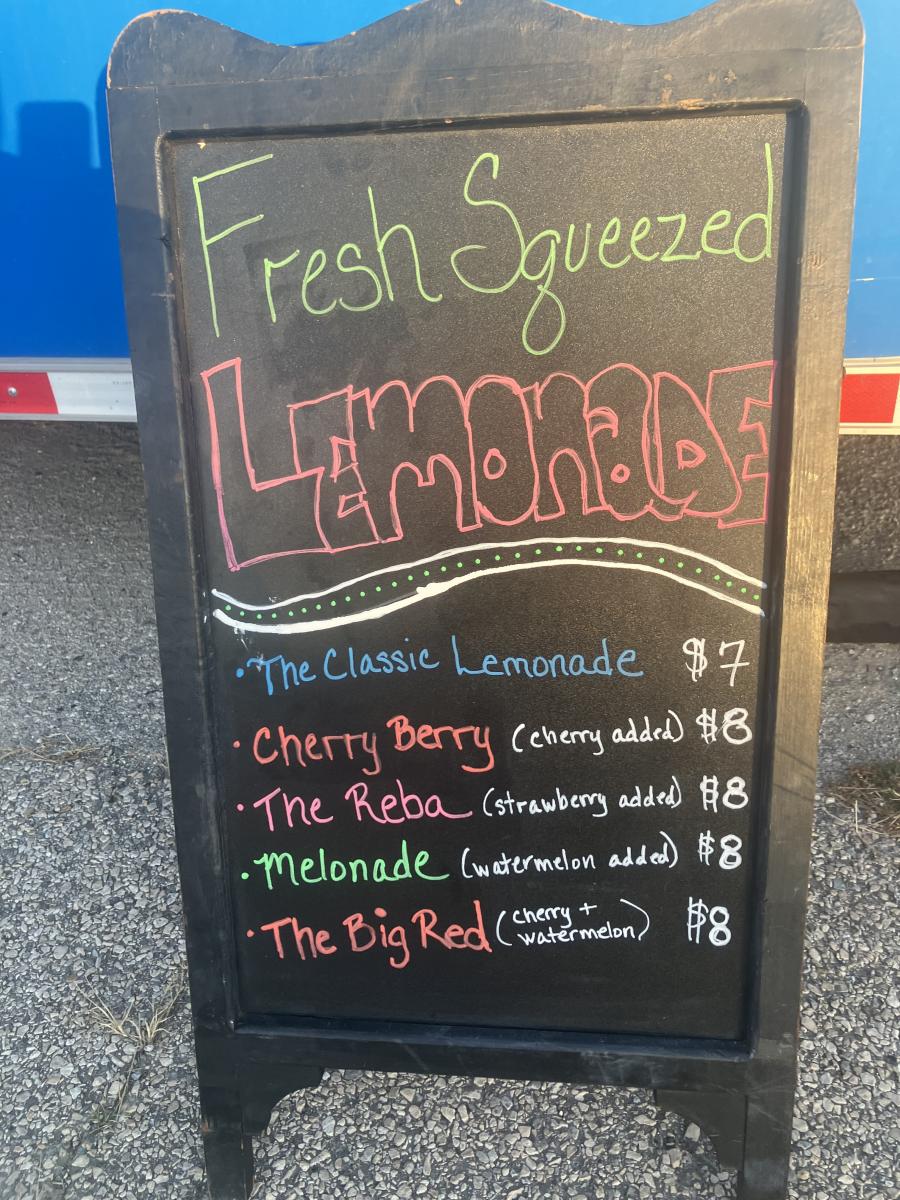 Fresh Squeezed
LEmonaDE
• The Classic Lemonade $7
• Cherry Berry (cherry added) $8
• The Reba (strawberry added) $8
• Melonade (watermelon added) $8
• The Big Red (cherry + watermelon) $8